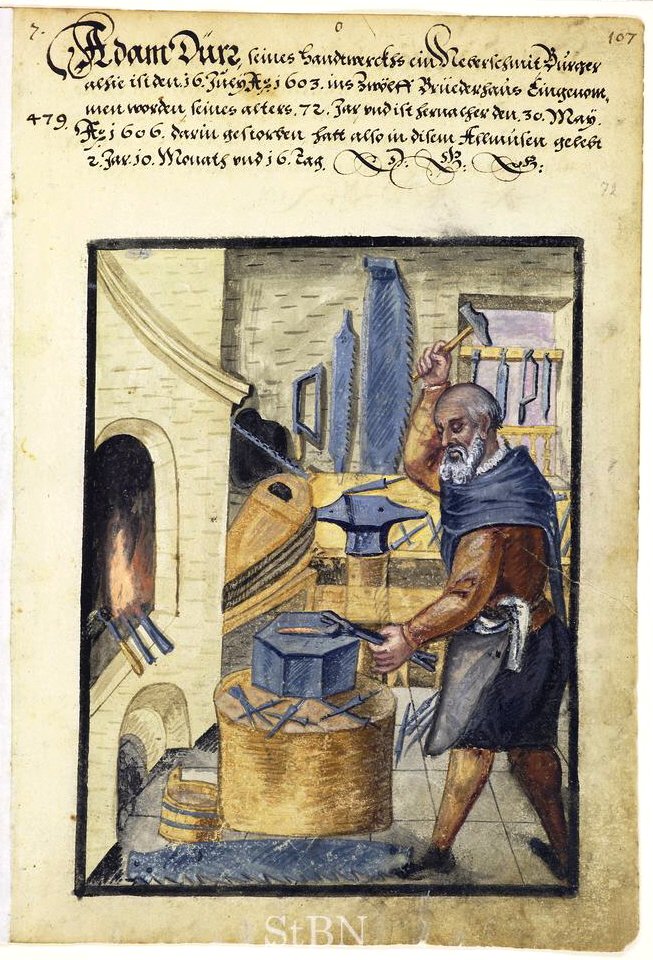 7.
0
107
Adam Dürr, seines handtwerckhs ein Neberschmit Burger
alhie ist den. 16. July Ao: 1603. ins Zwölff Brüederhaus Eingenom,
men worden seines alters. 72. Jar vnd ist hernacher den. 30. May.
479.
Ao: 1606. darin gestorben hatt also in disem Allmusen gelebt
2. Jar. 10. Monath vnd 16. Tag.
72
StBN